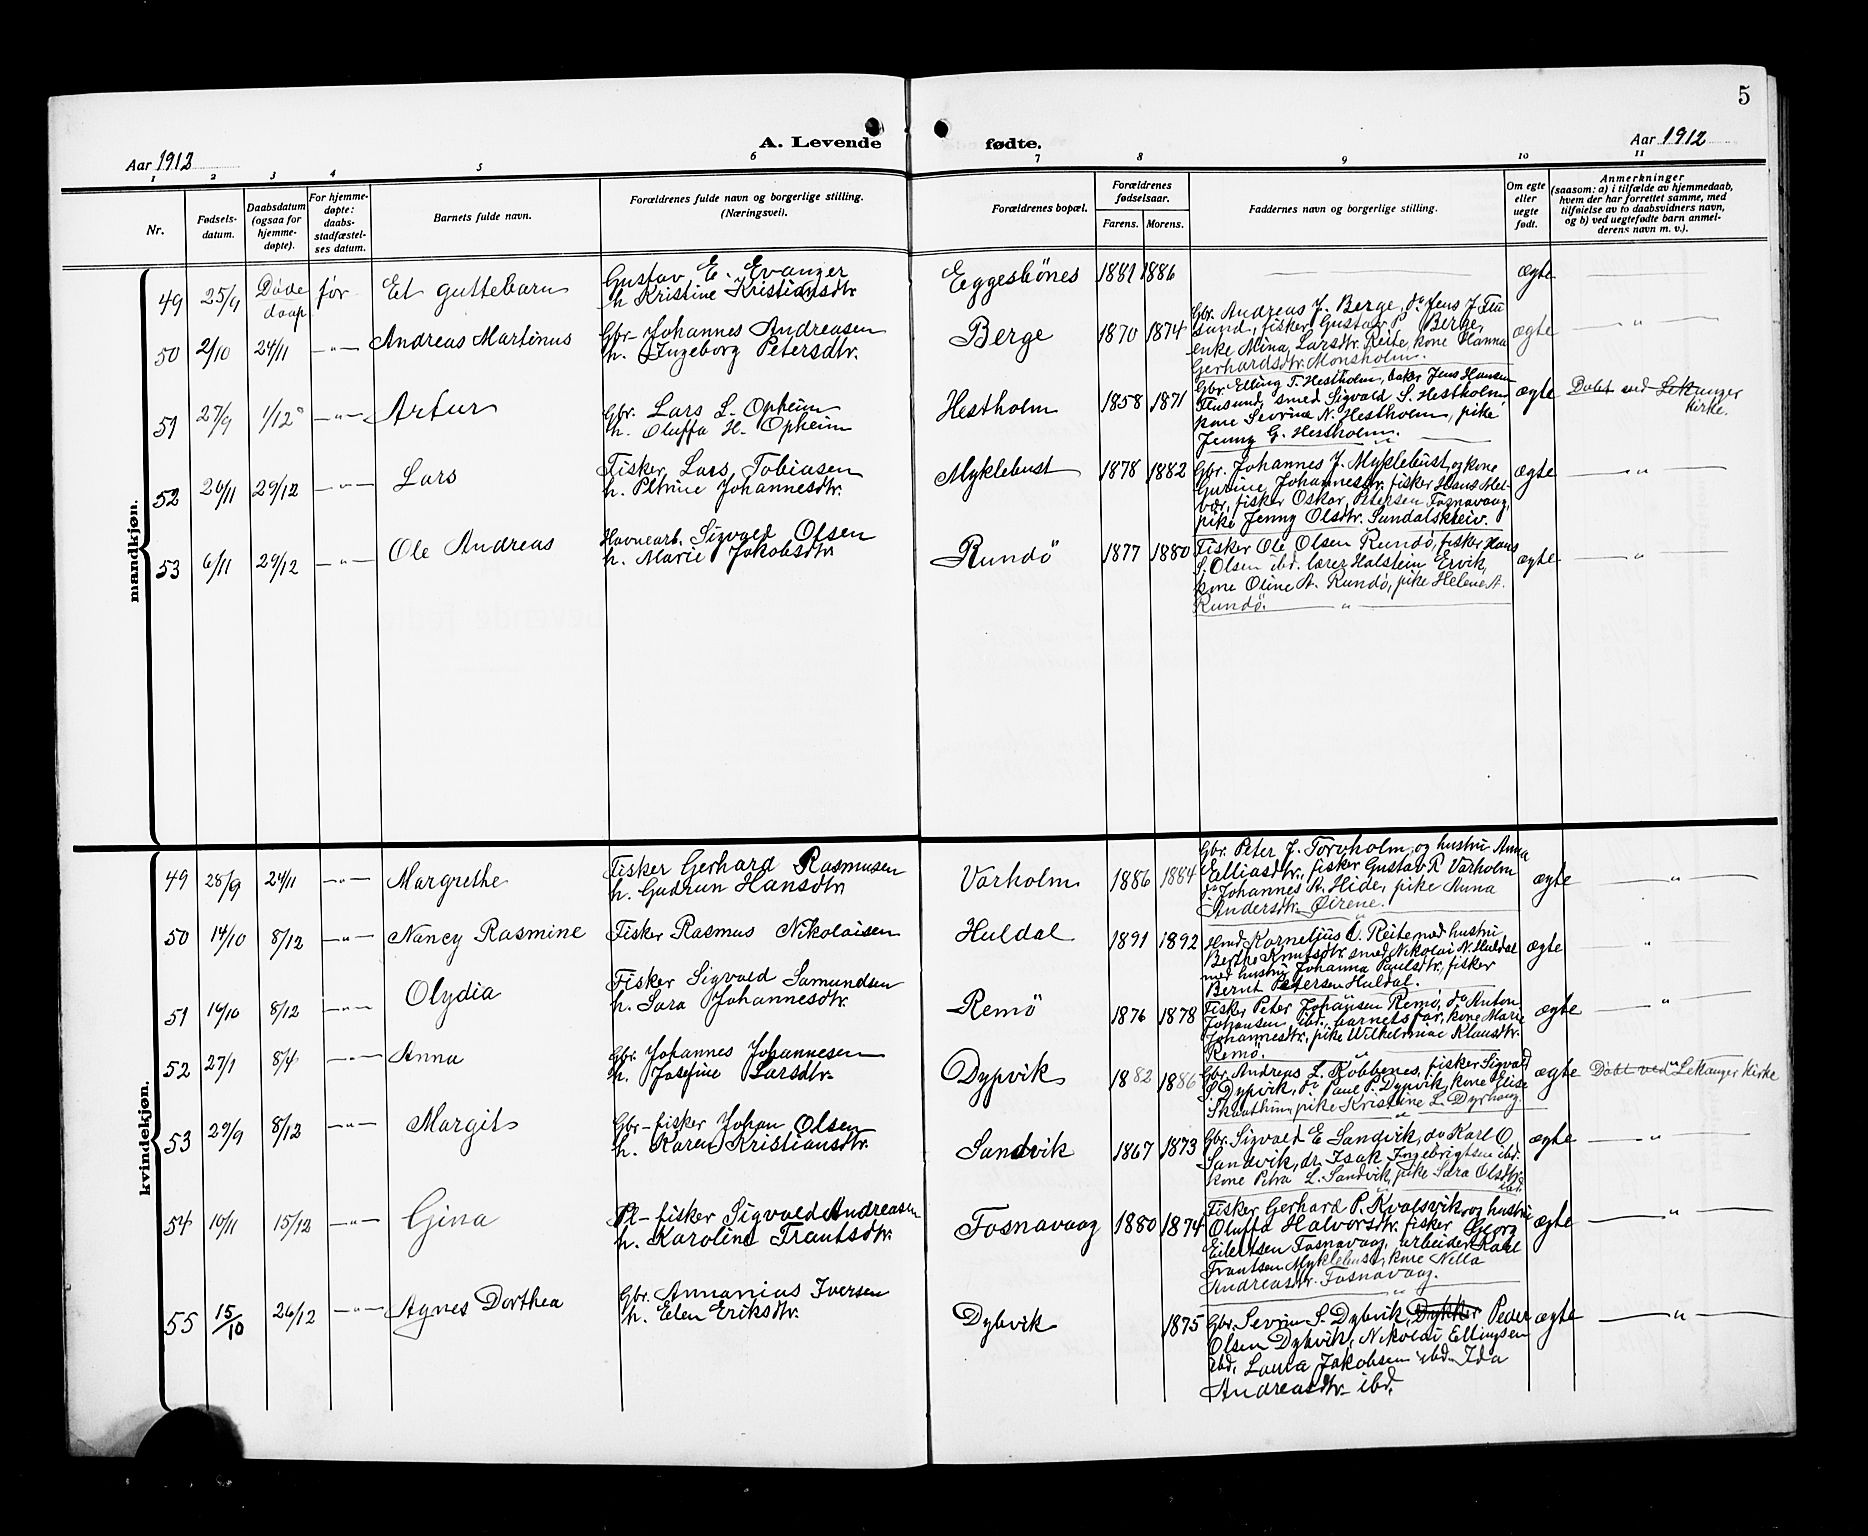 5
A. Levende fødte.
Aar 1912
Aar 1912
1 2 3 4 5 6 7 8 9 10 11
Nr.
Fødsels-
datum.
Daabsdatum
(ogsaa for
hjemme-
døpte).
For hjemme-
døpte:
daabs-
stadfæstel-
ses datum.
Barnets fulde navn.
Forældrenes fulde navn og borgerlige stilling.
(Næringsvei).
Forældrenes bopæl.
Forældrenes
fødselsaar.
Farens. Morens.
Faddernes navn og borgerlige stilling.
Om egte
eller
uegte
født.
Anmerkninger
(saasom: a) i tilfælde av hjemmedaab,
hvem der har forrettet samme, med
tilføielse av to daabsvidners navn,
og b) ved uegtefødte barn anmel-
derens navn m. v.).
mandkjøn.
49 25/9 Døde før
daap
Et guttebarn
Gustav E. Evanger
h. Kristine Kristiansdtr.
Eggesbönes 1881 1886 — ægte —
50 2/10 24/11 —„— Andreas Martinus
Gbr. Johannes Andreasen
h. Ingeborg Petersdtr.
Berge 1870 1874
Gbr. Andreas J. Berge, do Jens J. Flu
sund, fisker Gustav P. Berge,
enke Mina Larsdtr. Reite, kone Hanna
Gerhardsdtr. Monsholm.
ægte —„—
51 27/9 1/12 —„— Artur
Gbr. Lars L. Opheim
h. Oluffa H. Opheim
Hestholm 1858 1871
Gbr. Elling T. Hestholm, Jens Hansen
Flusund, smed Sigvald S. Hestholm
kone Sevrine N. Hestholm, pike
Jenny G. Hestholm.
ægte Døbt ved Lekanger
kirke.
52 20/11 29/12 —„— Lars
Fisker Lars Tobiasen
h. Petrine Johannesdtr.
Myklebust 1878 1882
Gbr. Johannes J. Myklebust, og kone
Gurine Johannesdtr. fisker Hans
fisker Oskar Petersen Fosnavaag,
pike Jenny Olsdtr. Sundalskleiv.
ægte —„—
53 6/11 29/12 —„— Ole Andreas
Havnearb. Sigvald Olsen
h. Marie Jakobsdtr.
Rundö 1877 1880
Fisker Ole Olsen Rundö, fisker Hans
S. Olsen ibd. lærer Halstein Ervik,
kone Oline A. Rundö, pike Helene A.
Rundö. —„—
ægte —„—
kvindekjøn.
49 28/9 24/11 —„— Margrethe
Fisker Gerhard Rasmusen
h. Gudrun Hansdtr.
Varholm 1886 1884
Gbr. Peter J. Torvholm, og hustru Anna
Elliasdtr., fisker Gustav R. Varholm
do Johannes A. Hide, pike Anna
Andersdtr. Öirene.
ægte —„—
50 14/10 8/12 —„— Nancy Rasmine
Fisker Rasmus Nikolaisen
Huldal 1891 1892
Kornelius O. Reite med hustru
Berthe Knutsdtr. smed Nikolai N. Huldal
med hustru Johanna Paulsdtr. fisker
Bernt Petersen Huldal.
ægte —„—
51 14/10 8/12 —„— Olydia
Fisker Sigvald Samundsen
h. Sara Johannesdtr.
Remö 1876 1878
Fisker Peter Johansen Remö, do Anton
Johansen ibd., barnets far, kone Marie
Johannesdtr., pike Wilhelmine Klausdtr.
Remö.
ægte —„—
52 27/1 8/4 —„— Anna
Gbr. Johannes Johannesen
h. Josefine Larsdtr.
Dypvik 1882 1886
Gbr. Andreas L. Kobbenes, fisker Sigvald
S. Dypvik, do Paul P. Dypvik, kone Elise
pike Kristine L. Dyrhaug.
ægte Døbt ved Lekanger kirke
53 29/9 8/12 —„— Margit
Gbr-fisker Johan Olsen
h. Karen Kristiansdtr.
Sandvik 1867 1873
Gbr. Sigvald E. Sandvik, do Karl O.
Sandvik, dr. Isak Ingebrigtsen ibd.
kone Petra L. Sandvik, pike Sara Olsdtr.
ibd.
ægte —„—
54 10/11 15/12 —„— Gina
Pl-fisker Sigvald Andreasen
h. Karoline Frantsdtr.
Fosnavaag 1880 1874
Fisker Gerhard P. Kvalsvik og hustru
Oluffa Halvorsdtr. fisker Georg
Eilertsen Fosnavaag, arbeider Karl
Frantsen Myklebust, kone Nilla
Andreasdtr. Fosnavaag.
ægte —„—
55 15/10 26/12 —„— Agnes Dorthea
Gbr. Annanias Iversen
h. Elen Eriksdtr.
Dybvik 1875
Gbr. Sevrin S. Dybvik, Dykker Peder
Olsen Dybvik, Nikolai Ellingsen
ibd, Laura Jakobsen ibd. Ida
Andreasdtr. ibd.
ægte —„—